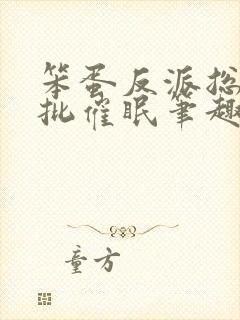 笨蛋反派总
批催眠笔趣
童方